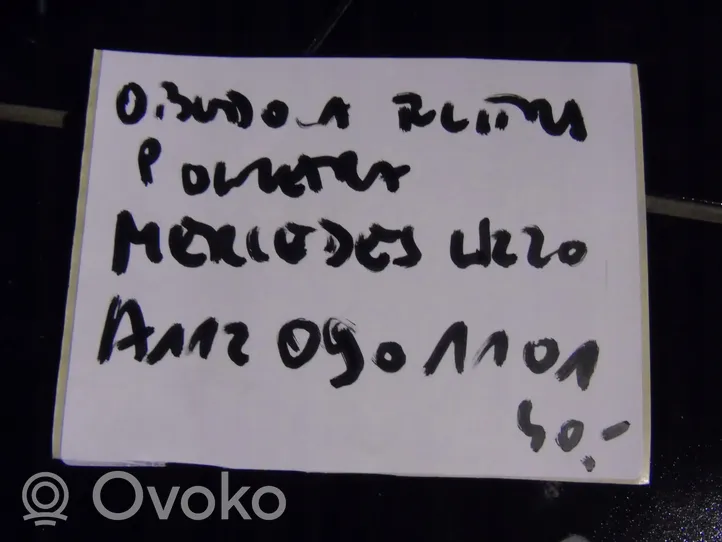 OBUDOWA FILTRA
POWIETRZA
MERCEDES W220
A112 090 1101
50,-
Ovoko